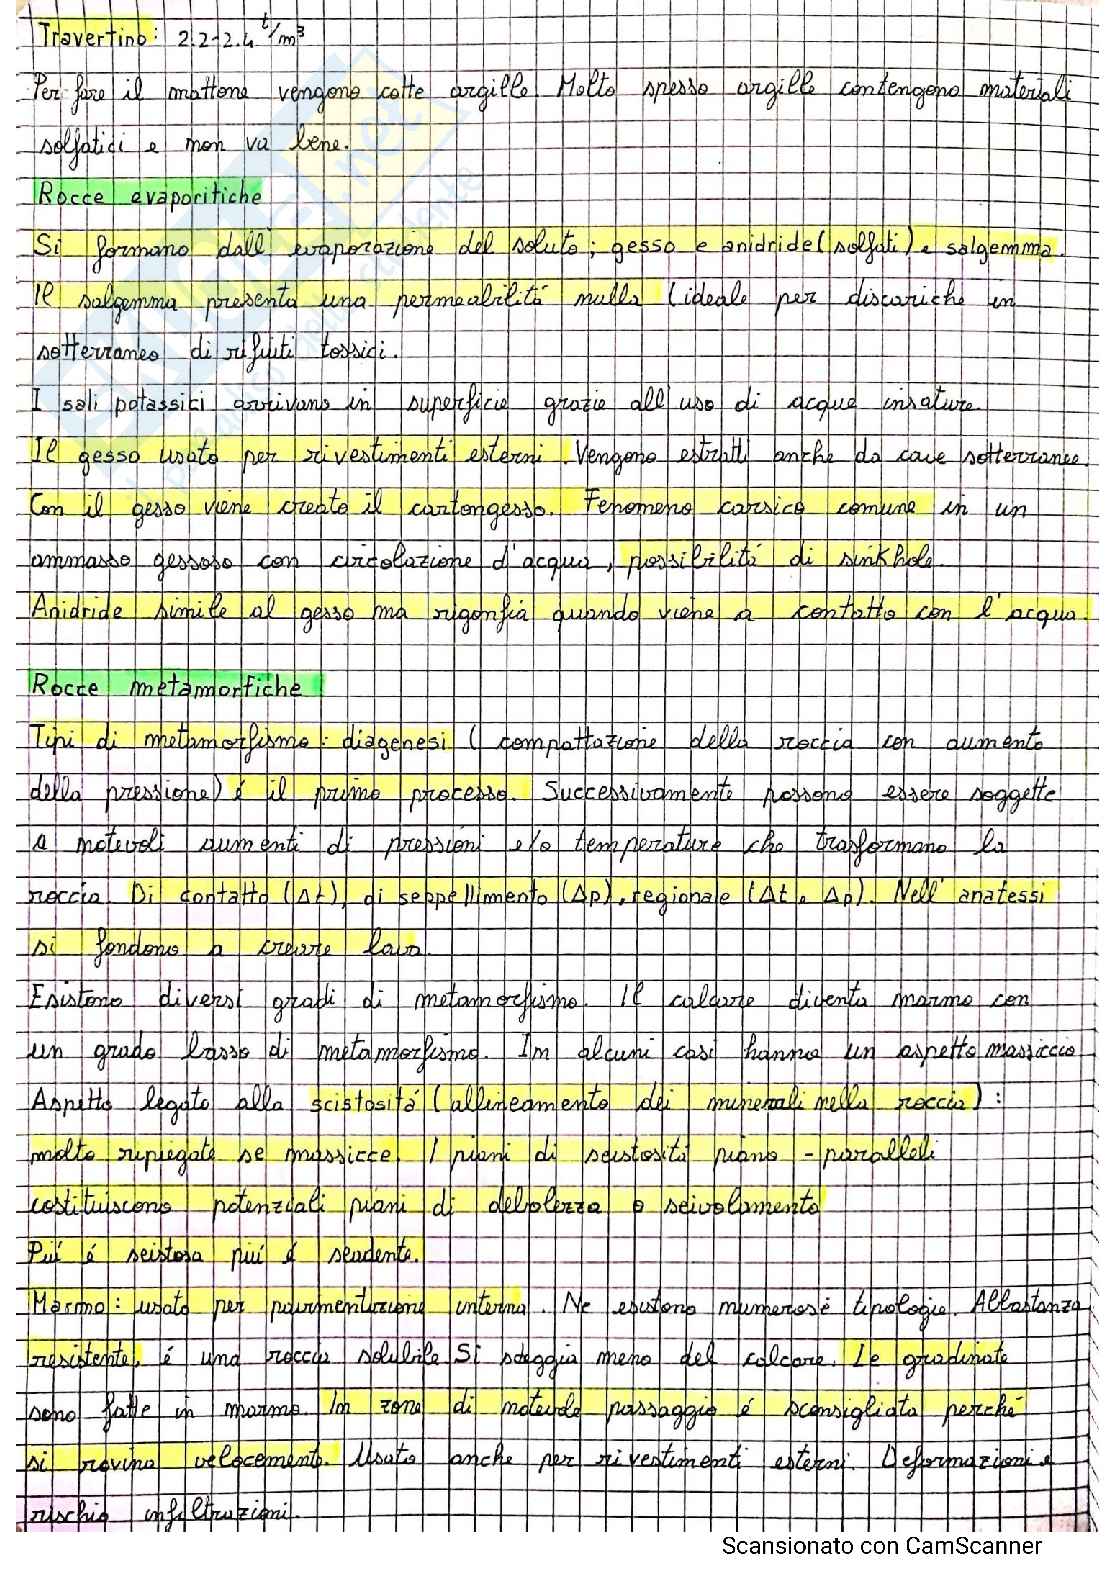 Travertino: 2.2-2.4 t/m³
Per fare il mattone vengono cotte argille. Molto spesso argille contengono materiali
solfatici e non va bene.
Rocce evaporitiche
Si formano dall'evaporazione del soluto; gesso e anidride (solfati) e salgemma.
Il salgemma presenta una permeabilitá nulla (ideale per discariche in
sotterraneo di rifiuti tossici.
I sali potassici arrivano in superficie grazie all'uso di acque insature.
Il gesso usato per rivestimenti esterni. Vengono estratti anche da cave sotterranee.
Con il gesso viene creato il cartongesso. Fenomeno carsico comune in un
ammasso gessoso con circolazione d'acqua, possibilitá di sinkhole.
Anidride simile al gesso ma rigonfia quando viene a contatto con l'acqua.
Rocce metamorfiche
Tipi di metamorfismo: diagenesi (compattazione della roccia con aumento
della pressione) é il primo processo. Successivamente possono essere soggette
a notevoli aumenti di pressioni e/o temperature che trasformano la
roccia. Di contatto (Δt), di seppellimento (Δp), regionale (Δt e Δp). Nell'anatessi
si fondono a creare lava.
Esistono diversi gradi di metamorfismo. Il calcare diventa marmo con
un grado basso di metamorfismo. In alcuni casi hanno un aspetto massiccio
Aspetto legato alla scistositá (allineamento dei minerali nella roccia):
molto ripiegate se massicce. I piani di scistositá piano-paralleli
costituiscono potenziali piani di debolezza o scivolamento
Piú é scistosa piú é scadente.
Marmo: usato per pavimentazione interna. Ne esistono numerose tipologie. Abbastanza
resistente, é una roccia solubile. Si scheggia meno del calcare. Le gradinate
sono fatte in marmo. In zone di notevole passaggio é sconsigliata perché
si rovina velocemente. Usato anche per rivestimenti esterni. Deformazioni e
rischio infiltrazioni.
Scansionato con CamScanner